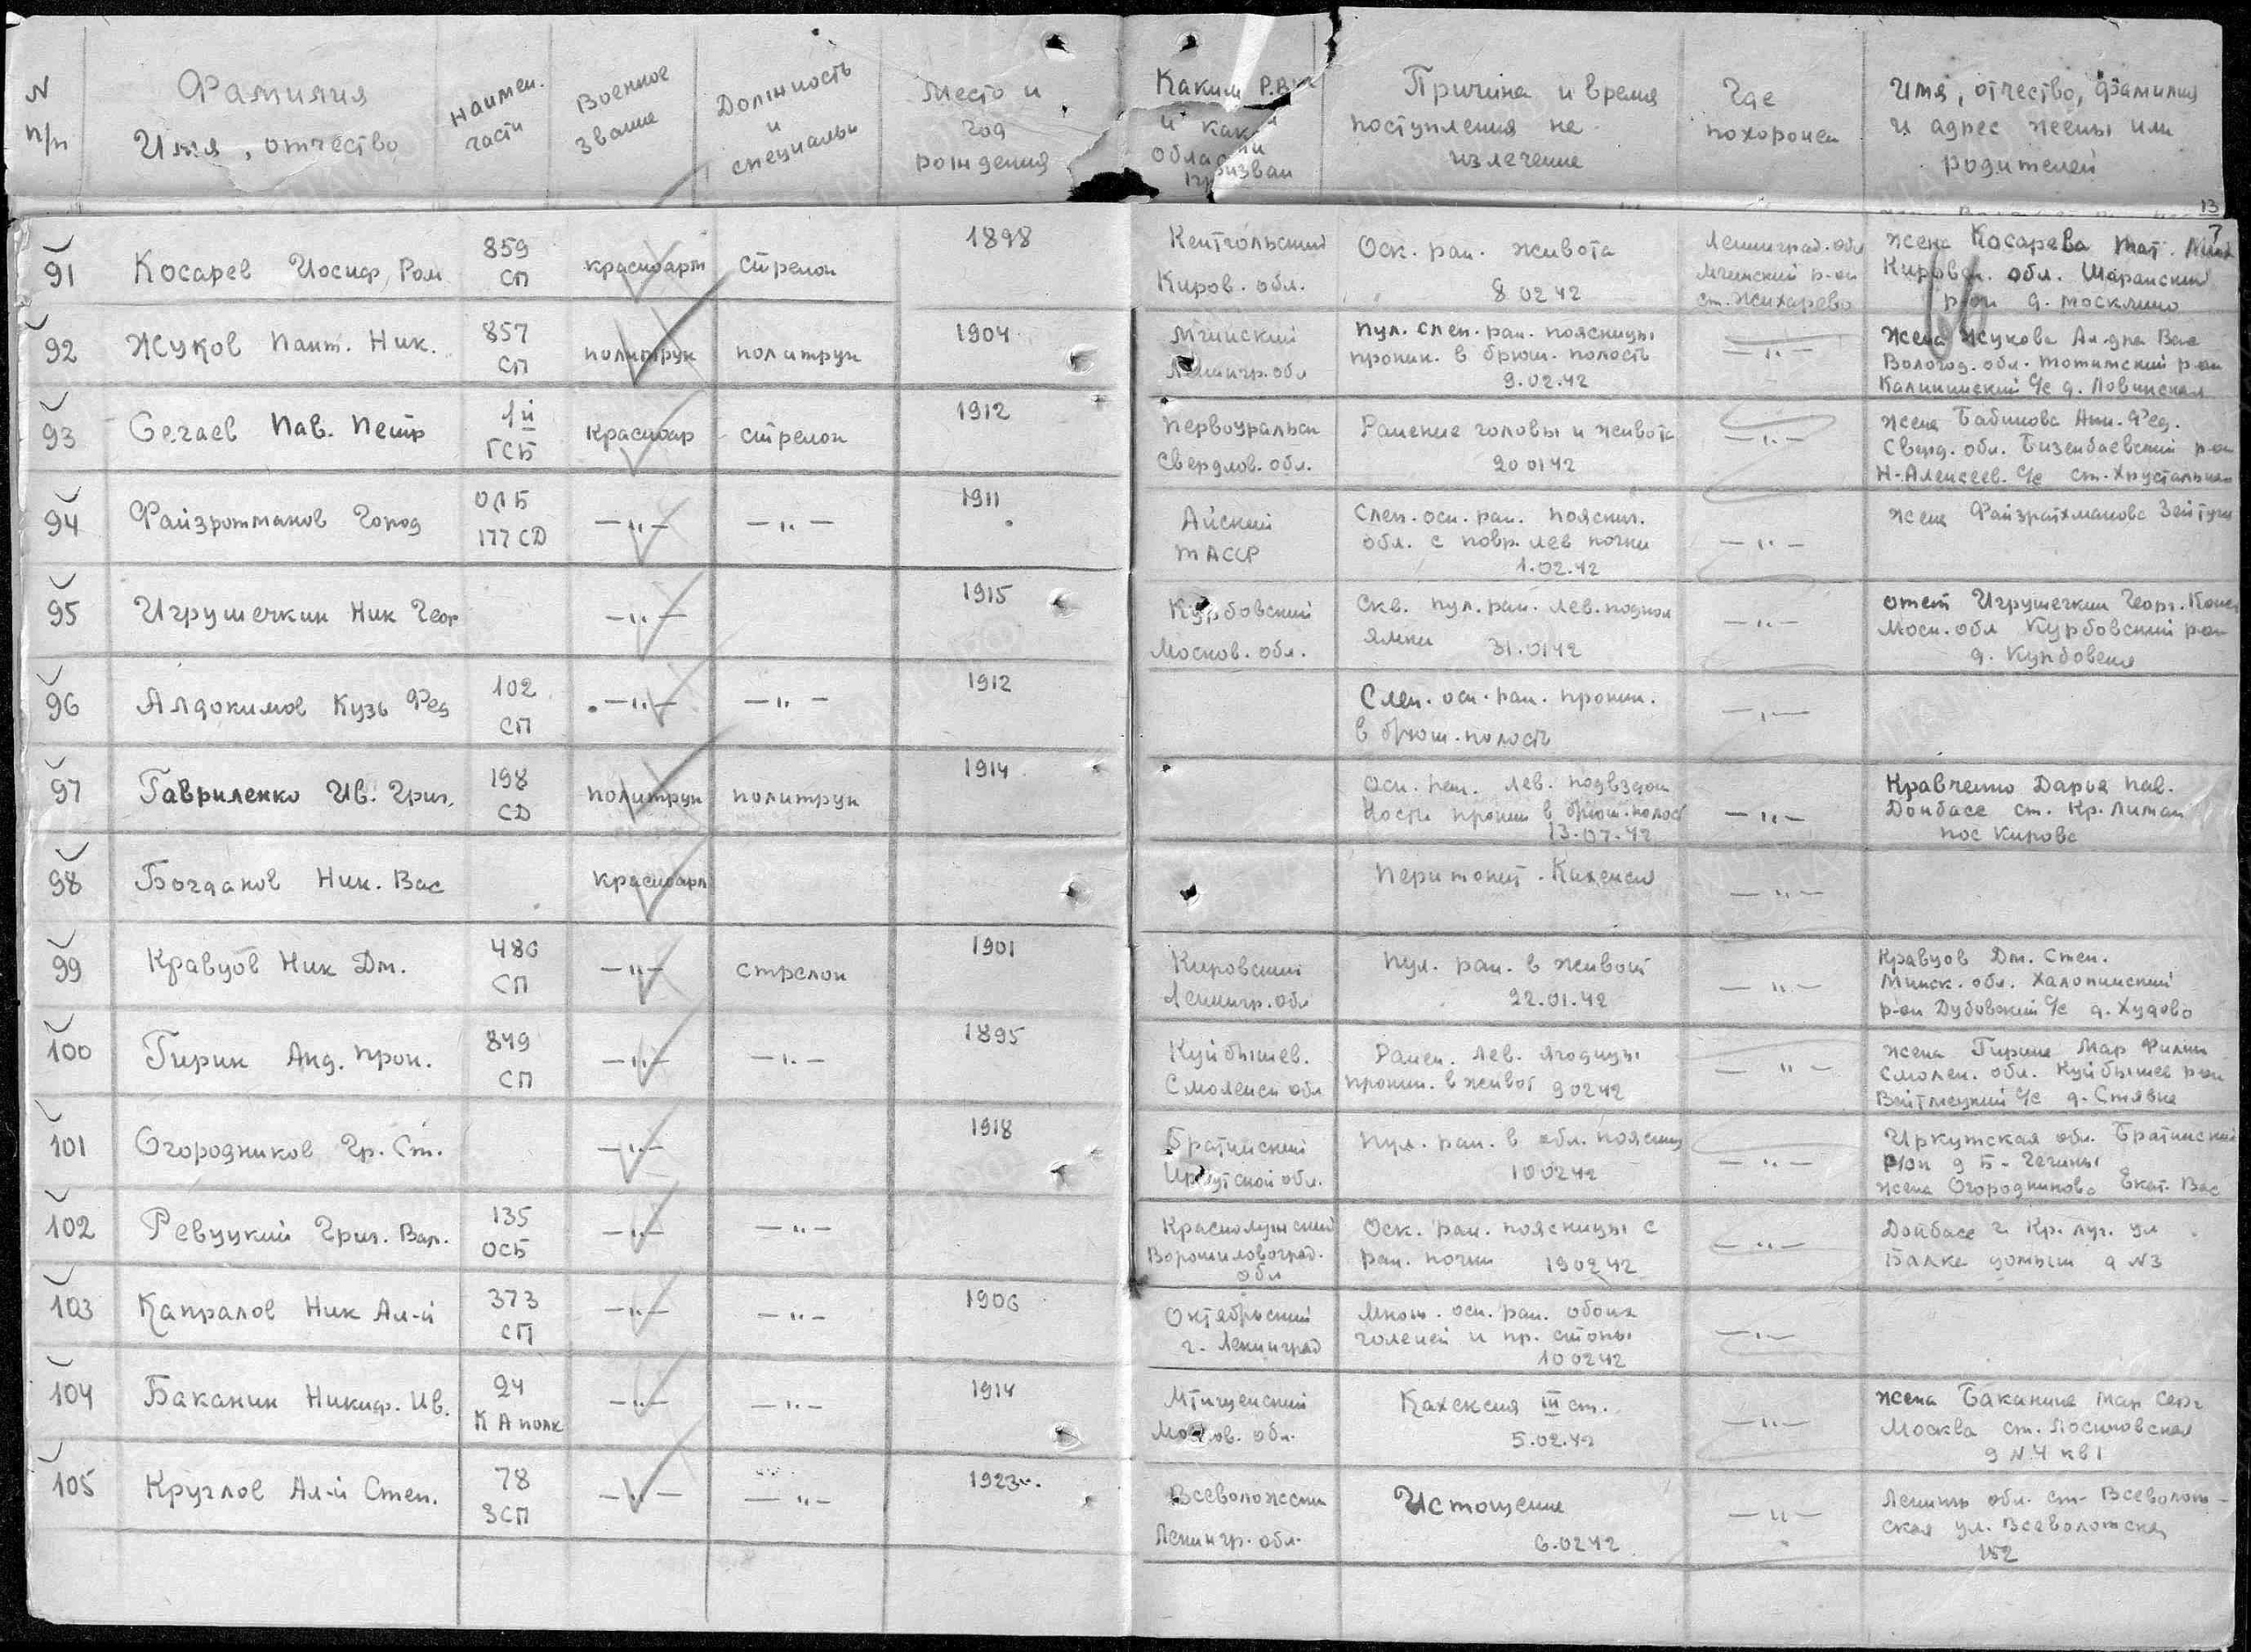 N п/п
Фамилия Имя, отчество
Наимен. части
Военное звание
Должность и специальн
Место и год рождения
Каким Р.В.К и как области призван
Причина и время поступления на излечение
Где похоронен
Имя, отчество, фамилия и адрес жены или родителей
13
91 Косарев Иосиф Ром
859 СП
красноарм
стрелок
1898
Киров. обл.
Оск. ран. живота
8 02 42
Ленинград. обл
Мгинский р-он
ст. Жихарево
жена Косарева Мат.
Кировск. обл. Шаранский
р-он д. Москлино
92 Жуков Пант. Ник.
857 СП
политрук
политрук
1904
Мгинский
Ленингр. обл
Пул. слеп. ран. поясницы
проник. в брюш. полость
9.02.42
— „ —
Жена Жукова Ал-дра Вас
Вологод. обл. Тотемский р-он
Калининский с/с д. Ловинская
93 Сегаев Пав. Петр
1й ГСБ
Красноар
стрелок
1912
Первоуральск
Свердлов. обл.
Ранение головы и живота
20 01 42
— „ —
жена Бабинова Анн. Фед.
Сверд. обл. Бизенбаевский р-он
Н-Алексеев. с/с ст. Хрустальная
94 Файзротманов Город
ОЛБ
177 СД
— „ —
— „ —
1911
Айский
ТАССР
Слеп. оск. ран. пояснич.
обл. с повр. лев почки
1.02.42
— „ —
жена Файзратхманова Зейтуна
95 Игрушечкин Ник Геор
— „ —
1915
Курбовский
Москов. обл.
Скв. пул. ран. лев. поднол
ямки 31.01 42
— „ —
отец Игрушечкин Георг. Конс
Моск. обл Курбовский р-он
96 Алдокимов Кузь Фед
102 СП
— „ —
— „ —
1912
Слеп. оск. ран. проник.
в брюш. полость
— „ —
97 Гавриленко Ив. Григ.
198 СД
политрук
политрук
1914
Оск. ран. лев. подвздош
кости проник в брюш. полост
13.07.42
— „ —
Кравченко Дарья Пав.
Донбасс ст. Кр. Лиман
пос Кирова
98 Богданов Ник. Вас
красноарм
Перитонит. Кахексия
— „ —
99 Кравцов Ник Дм.
486 СП
— „ —
стрелок
1901
Кировский
Ленингр. обл
Пул. ран. в живот
22.01.42
— „ —
Кравцов Дм. Степ.
Минск. обл. Халопинский
р-он Дубовский с/с д. Худово
100 Гирин Анд. Прок.
849 СП
— „ —
— „ —
1895
Куйбышев.
Смоленск обл
Ранен. лев. ягодицы
проник. в живот 9 02 42
— „ —
жена Гирина Мар Филип
Смолен. обл. Куйбышев р-он
с/с д. Стявка
101 Огородников Гр. Ст.
— „ —
1918
Братский
Иркутской обл.
Пул. ран. в обл. поясниц
10 02 42
— „ —
Иркутская обл. Братский
р-он д Б-
жена Огородникова Екат. Вас
102 Ревуцкий Григ. Вар.
135 ОСБ
— „ —
— „ —
Краснолучский
Ворошиловоград.
обл
Оск. ран. поясницы с
ран. почки 19 02 42
— „ —
Донбасс г. Кр. луч. ул
Балка д N3
103 Капралов Ник Ал-й
373 СП
— „ —
— „ —
1906
Октябрьский
г. Ленинград
Множ. оск. ран. обоих
голеней и пр. стопы
10 02 42
— „ —
104 Баканин Никиф. Ив.
24
КА полк
— „ —
— „ —
1914
Мтищенский
Москов. обл.
Кахексия III ст.
5.02.42
— „ —
жена Баканина Мар Серг
Москва ст. Лосиновская
д N 4 кв 1
105 Круглов Ал-й Степ.
78
ЗСП
— „ —
— „ —
1923
Всеволожский
Ленингр. обл.
Истощение
6.02 42
— „ —
Ленингр обл. ст. Всеволож-
ская ул. Всеволожская
152